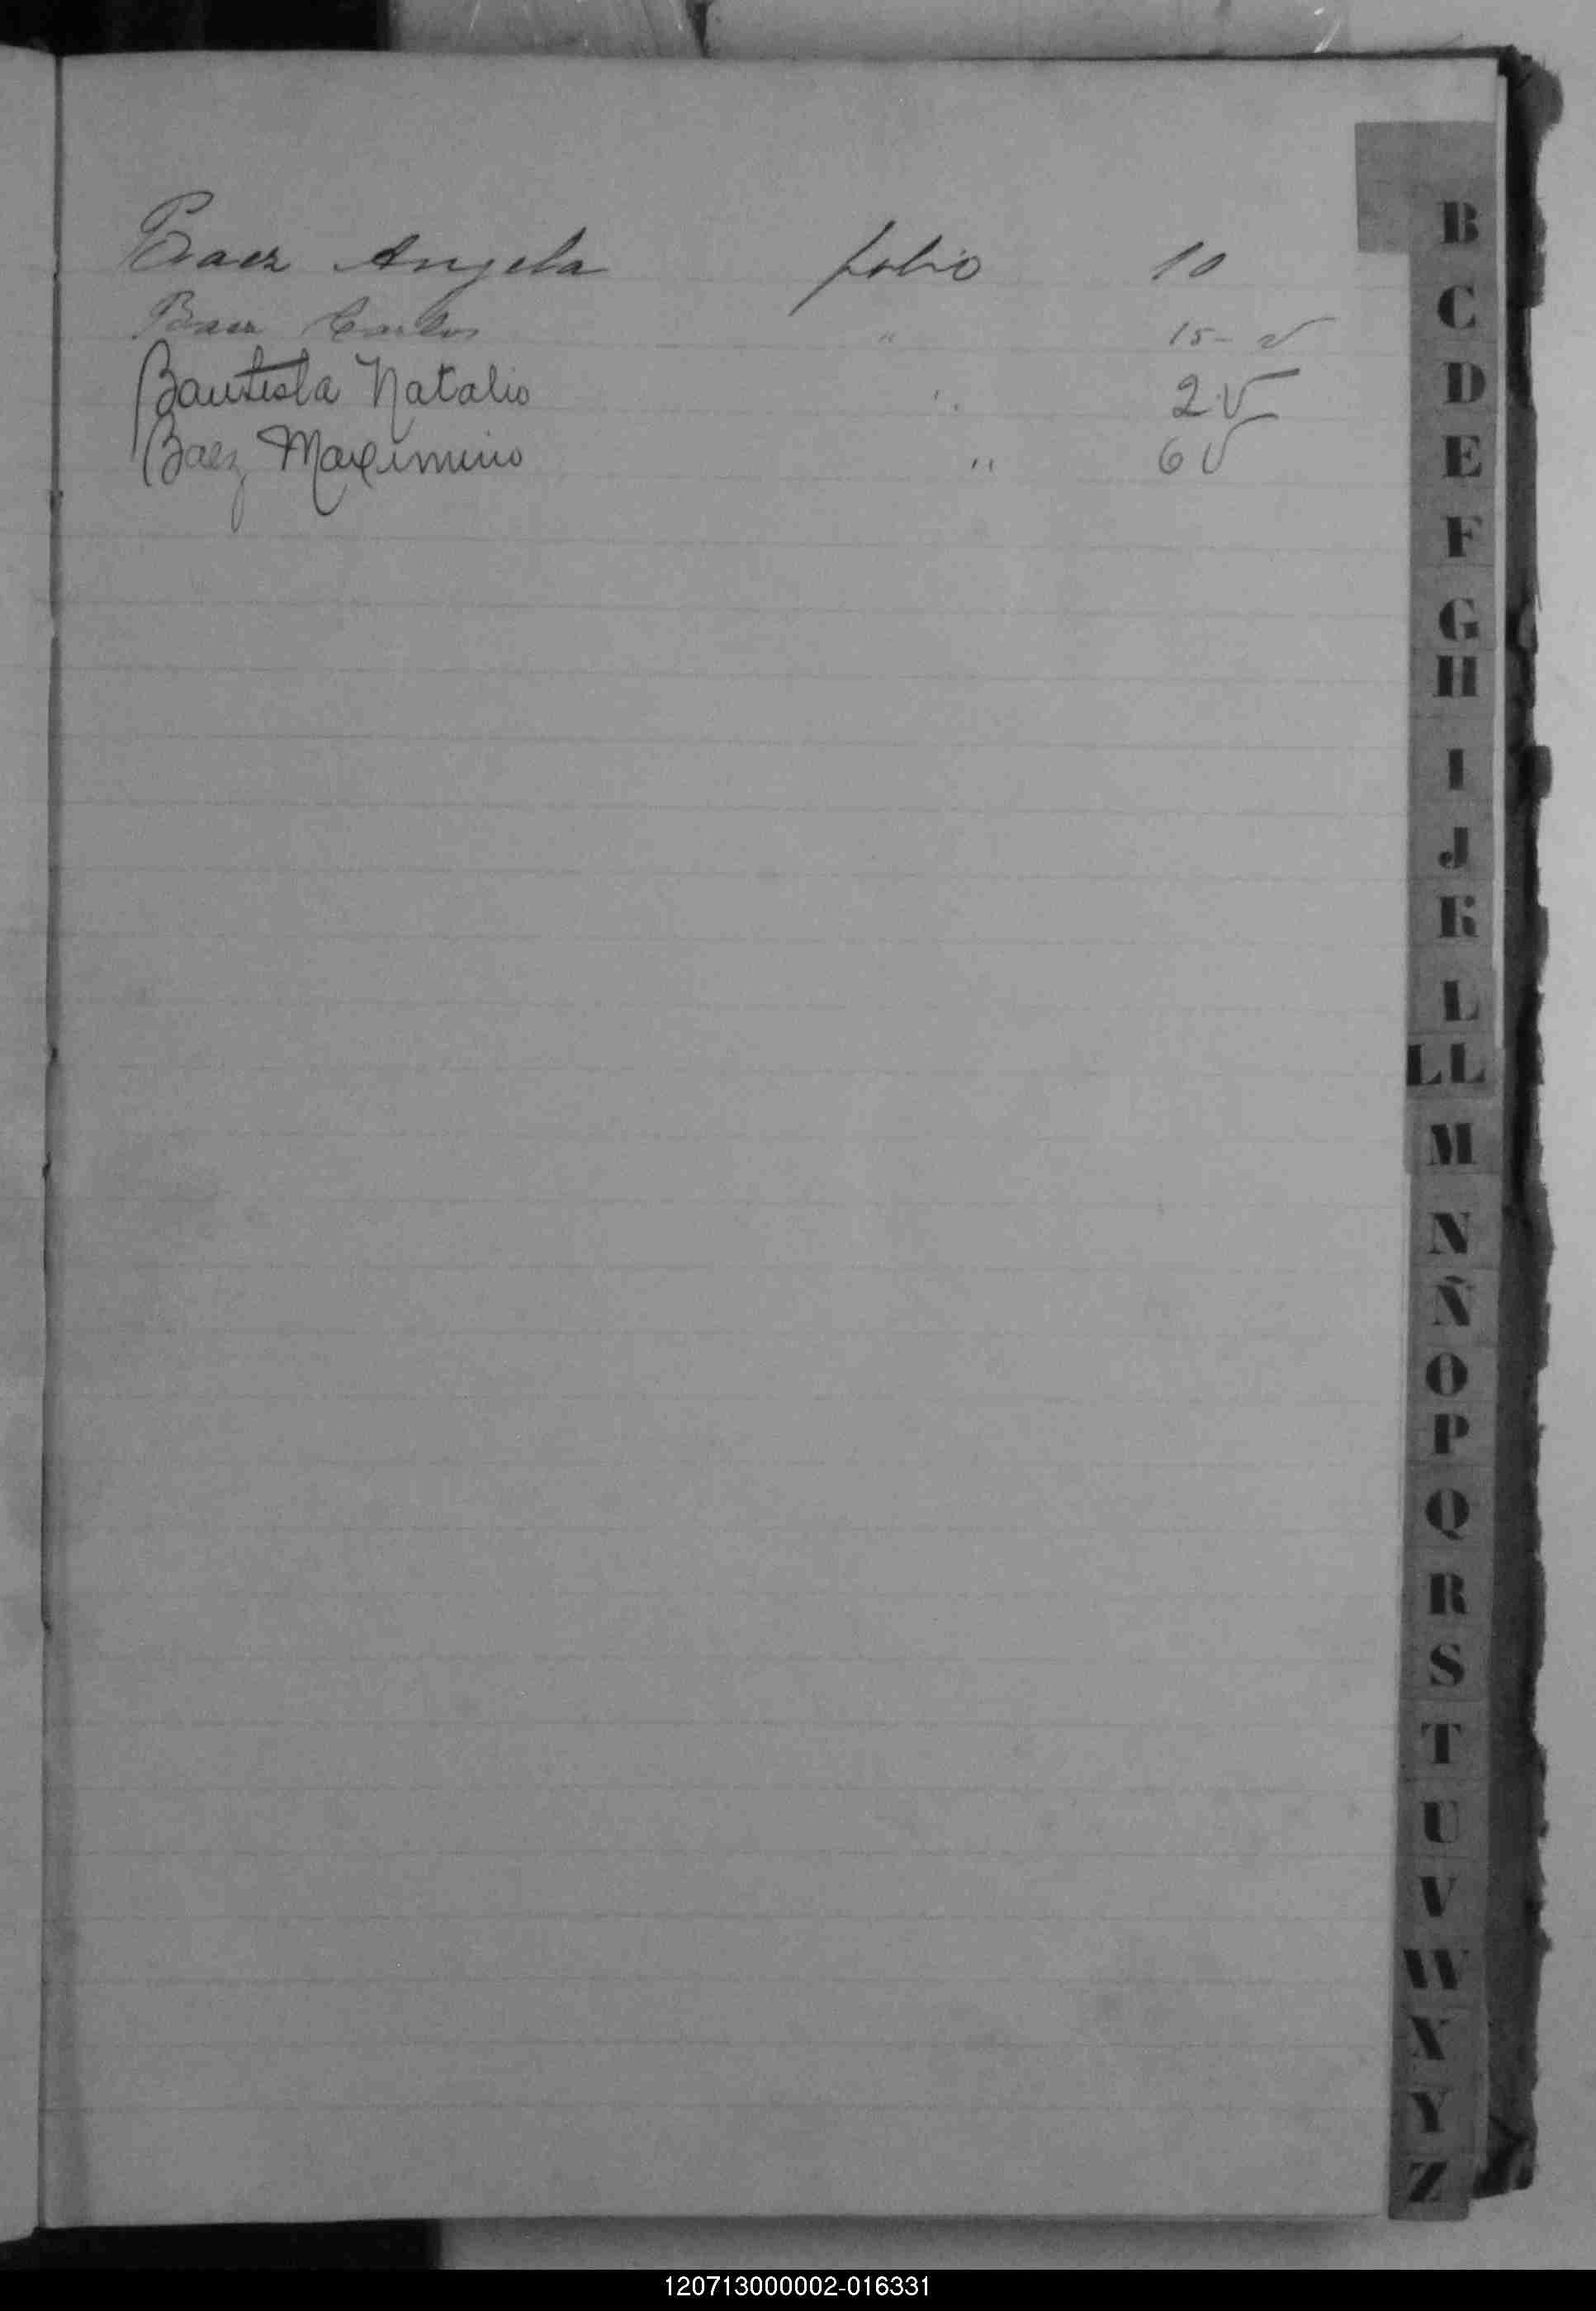 Baez Angela folio 10
Baez Carlos " 15- v
Bautista Natalio " 2 v
Baez Maximino " 6 v
B
C
D
E
F
G
H
I
J
K
L
LL
M
N
Ñ
O
P
Q
R
S
T
U
V
W
X
Y
Z
120713000002-016331